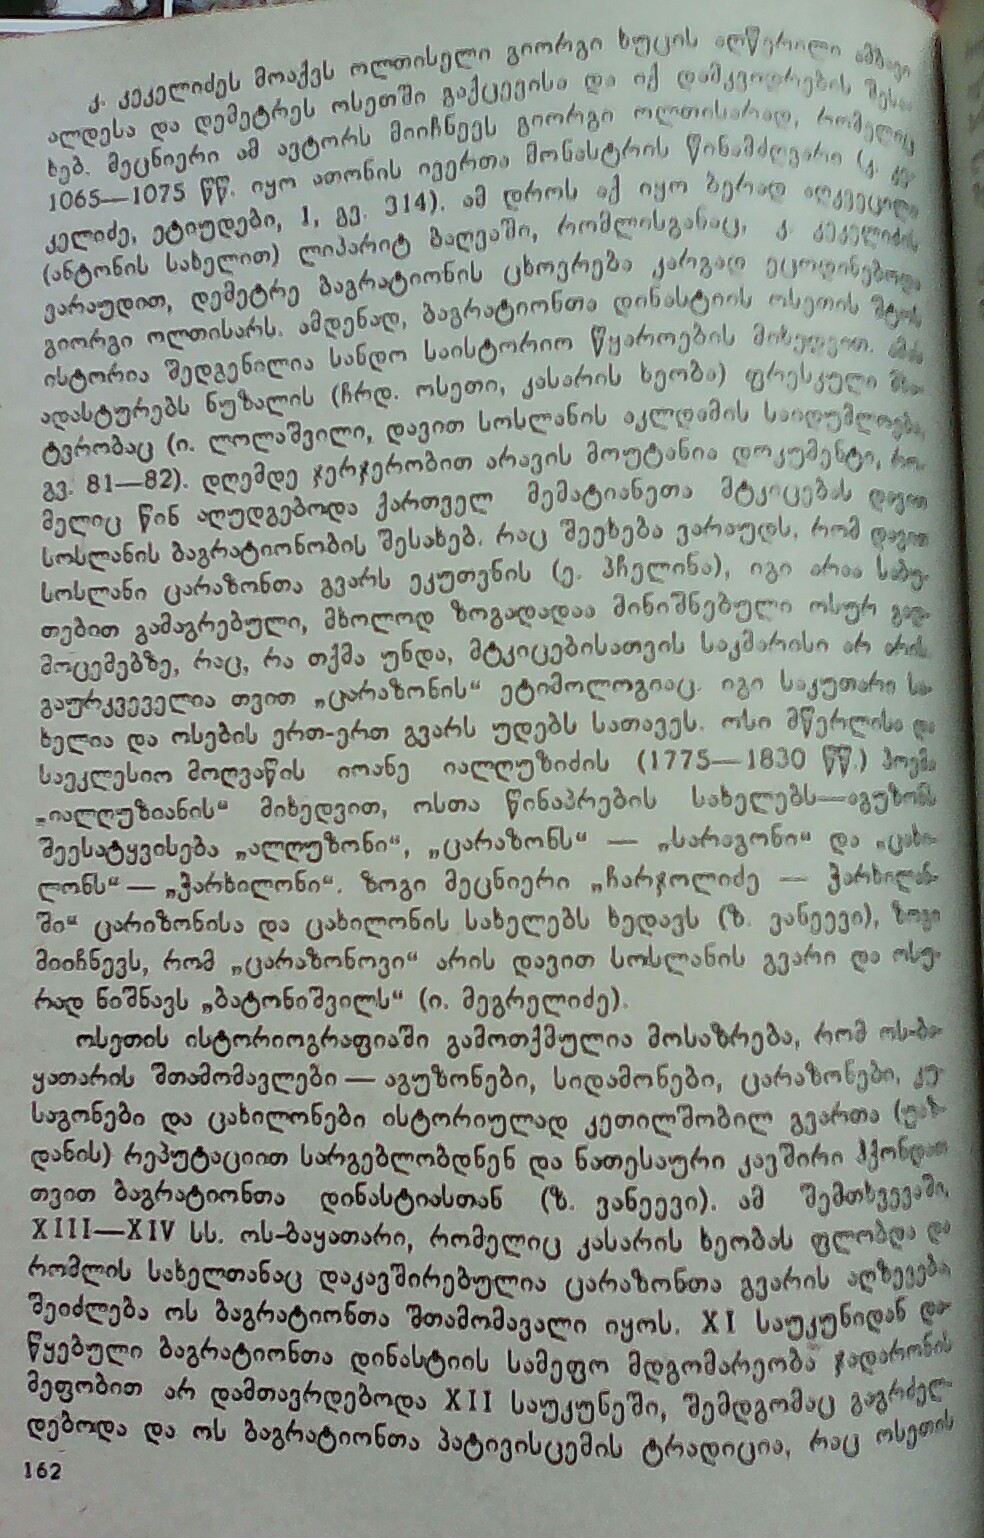 კ. კეკელიძეს მოაქვს ოლთისელი გიორგი ხუცის აღწერილი ამბავი
ალდესა და დემეტრეს ოსეთში გაქცევისა და იქ დამკვიდრების შესა-
ხებ. მეცნიერი ამ ავტორს მიიჩნევს გიორგი ოლთისარად, რომელიც
1065—1075 წწ. იყო ათონის ივერთა მონასტრის წინამძღვარი (კ. კე-
კელიძე, ეტიუდები, 1, გვ. 314). ამ დროს იქ იყო ბერად აღკვეცილი
(ანტონის სახელით) ლიპარიტ ბაღვაში, რომლისგანაც, კ. კეკელიძის
ვარაუდით, დემეტრე ბაგრატიონის ცხოვრება კარგად ეცოდინებოდა
გიორგი ოლთისარს. ამდენად, ბაგრატიონთა დინასტიის ოსეთის შტოს
ისტორია შედგენილია სანდო საისტორიო წყაროების მიხედვით. ამას
ადასტურებს ნუზალის (ჩრდ. ოსეთი, კასარის ხეობა) ფრესკული მხა-
ტვრობაც (ი. ლოლაშვილი, დავით სოსლანის აკლდამის საიდუმლოება,
გვ. 81—82). დღემდე ჯერჯერობით არავის მოუტანია დოკუმენტი, რო-
მელიც წინ აღუდგებოდა ქართველ მემატიანეთა მტკიცებას დავით
სოსლანის ბაგრატიონობის შესახებ. რაც შეეხება ვარაუდს, რომ დავით
სოსლანი ცარაზონთა გვარს ეკუთვნის (ე. პჩელინა), იგი არაა საბუ-
თებით გამაგრებული, მხოლოდ ზოგადადაა მინიშნებული ოსურ გად-
მოცემებზე, რაც, რა თქმა უნდა, მტკიცებისათვის საკმარისი არ არის.
გაურკვეველია თვით „ცარაზონის“ ეტიმოლოგიაც. იგი საკუთარი სა-
ხელია და ოსების ერთ-ერთ გვარს უდებს სათავეს. ოსი მწერლისა და
საეკლესიო მოღვაწის იოანე იალღუზიძის (1775—1830 წწ.) პოემა
„იალღუზიანის“ მიხედვით, ოსთა წინაპრების სახელებს—აგუზონს
შეესატყვისება „ალღუზონი“, „ცარაზონს“ — „სარაგონი“ და „ცახი-
ლონს“ — „ჭარხილონი“. ზოგი მეცნიერი „ჩარჯოლიძე — ჭარხილან-
ში“ ცარიზონისა და ცახილონის სახელებს ხედავს (ზ. ვანეევი), ზოგი
მიიჩნევს, რომ „ცარაზონოვი“ არის დავით სოსლანის გვარი და ოსუ-
რად ნიშნავს „ბატონიშვილს“ (ი. მეგრელიძე).
ოსეთის ისტორიოგრაფიაში გამოთქმულია მოსაზრება, რომ ოს-ბა-
ყათარის შთამომავლები — აგუზონები, სიდამონები, ცარაზონები, კუ-
საგონები და ცახილონები ისტორიულად კეთილშობილ გვართა (უაზ-
დანის) რეპუტაციით სარგებლობდნენ და ნათესაური კავშირი ჰქონდათ
თვით ბაგრატიონთა დინასტიასთან (ზ. ვანეევი). ამ შემთხვევაში,
XIII—XIV სს. ოს-ბაყათარი, რომელიც კასარის ხეობას ფლობდა და
რომლის სახელთანაც დაკავშირებულია ცარაზონთა გვარის აღზევება
შეიძლება ოს ბაგრატიონთა შთამომავალი იყოს. XI საუკუნიდან და-
წყებული ბაგრატიონთა დინასტიის სამეფო მდგომარეობა ჯადარონის
მეფობით არ დამთავრდებოდა XII საუკუნეში, შემდგომაც გაგრძელ-
დებოდა და ოს ბაგრატიონთა პატივისცემის ტრადიცია, რაც ოსეთის
162